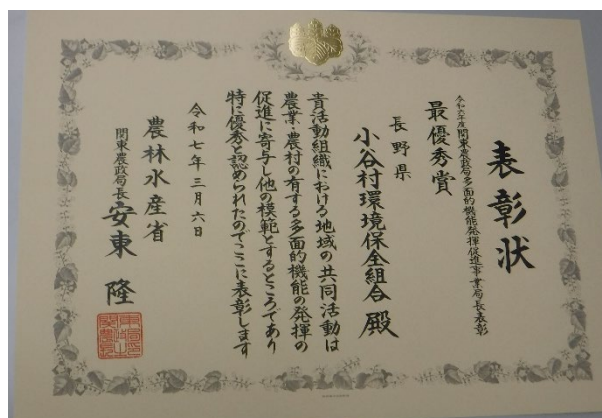 表彰状
令和六年度関東農政局多面的機能発揮促進事業局長表彰
最優秀賞
長野県
小谷村環境保全組合 殿
貴活動組織における地域の共同活動は
農業・農村の有する多面的機能の発揮の
促進に寄与し他の模範とするところであり
特に優秀と認められたのでここに表彰します
令和七年三月六日
農林水産省
関東農政局長 安東 隆